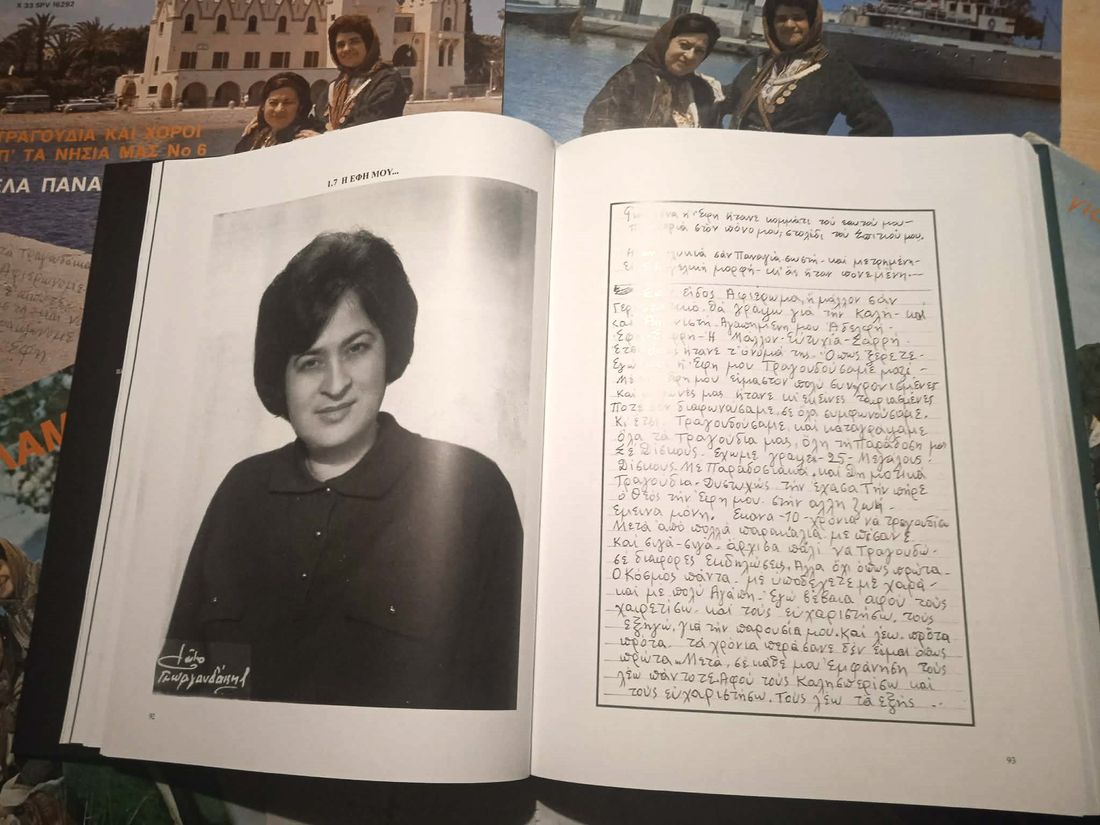 X 33 SPV 16292
ΤΡΑΓΟΥΔΙΑ ΚΑΙ ΧΟΡΟΙ
Π' ΤΑ ΝΗΣΙΑ ΜΑΣ Νο 6
ΕΛΑ ΠΑΝΑ
1.7 Η ΕΦΗ ΜΟΥ...
Γεωργανδάκης
92
η Έφη ήτανε κομμάτι τού εαυτού μου-
στόν πόνο μου, στολίδι τού Σπιτιού μου.
σάν Παναγία σωστή- καί μετρημένη-
μορφή- κι άς ήταν πονεμένη-
είδος Αφιέρωμα, ή μάλλον σάν
θά γράψω γιά τήν Καλή- καί
Αγαπημένη μου Αδελφή-
Ή Μάλλον Ευτυχία- Σαρρή-
ήτανε τ' όνομά της. Όπως ξέρετε-
Εγώ η Έφη μου Τραγουδούσαμε μαζί-
Έφη μου είμαστον πολύ συγχρονισμένες
καί φωνές μας ήτανε κι εκείνες ταιριασμένες
Ποτέ δέν διαφωνούσαμε, σέ όλα συμφωνούσαμε.
Κι Έτσι Τραγουδούσαμε, καί καταγράψαμε
όλα τά Τραγούδια μας, όλη τή Παράδοση μας
Σέ Δίσκους. έχωμε γράψει- 25- Μεγάλους-
Δίσκους. Μέ Παραδοσιακά, καί Δημοτικά
Τραγούδια- Δυστυχώς τήν έχασα Τήν πήρε
ό Θεός τήν Έφη μου στήν άλλη ζωή
έμεινα μόνη. Έκανα- 10- χρόνια νά τραγουδίσω
Μετά από πολλά παρακάλια μέ πίσανε
καί σιγά-σιγά- άρχισα πάλι νά Τραγουδώ-
σέ διάφορες Εκδηλώσεις, Αλλά όχι όπως πρώτα-
Ο Κόσμος πάντα- μέ υποδέχετε μέ χαρά-
καί μέ πολύ Αγάπη- Εγώ βέβαια αφού τούς
χαιρετίσω- καί τούς ευχαριστήσω, τούς
εξηγώ, γιά τήν παρουσία μου. Καί λέω- πρώτα
πρώτα- τά χρόνια περάσανε δέν είμαι όπως
πρώτα- Μετά, σέ κάθε μου Εμφάνηση τούς
λέω πάντοτε. Αφού τούς Καλησπερίσω καί
τούς ευχαριστήσω. Τούς λέω τά εξής...
93